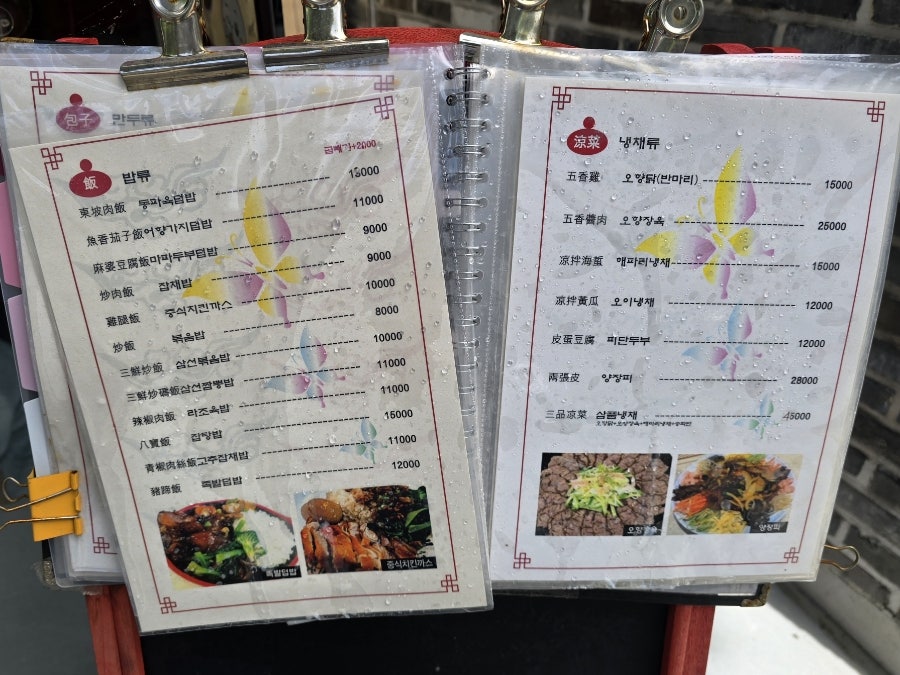 包子 만두류
곱빼기+2000
飯 밥류
東坡肉飯 동파육덮밥 13000
魚香茄子飯 어향가지덮밥 11000
麻婆豆腐飯 마파두부덮밥 9000
炒肉飯 잡채밥 9000
雞腿飯 중식치킨까스 10000
炒飯 볶음밥 8000
三鮮炒飯 삼선볶음밥 10000
三鮮炒碼飯 삼선짬뽕밥 11000
辣椒肉飯 라조육밥 11000
八寶飯 잡탕밥 15000
青椒肉絲飯 고추잡채밥 11000
豬蹄飯 족발덮밥 12000
족발덮밥
중식치킨까스
涼菜 냉채류
五香雞 오향닭(반마리) 15000
五香醬肉 오향장육 25000
凉拌海蜇 해파리냉채 15000
凉拌黃瓜 오이냉채 12000
皮蛋豆腐 피단두부 12000
兩張皮 양장피 28000
三品凉菜 삼품냉채 45000
오향장육
양장피